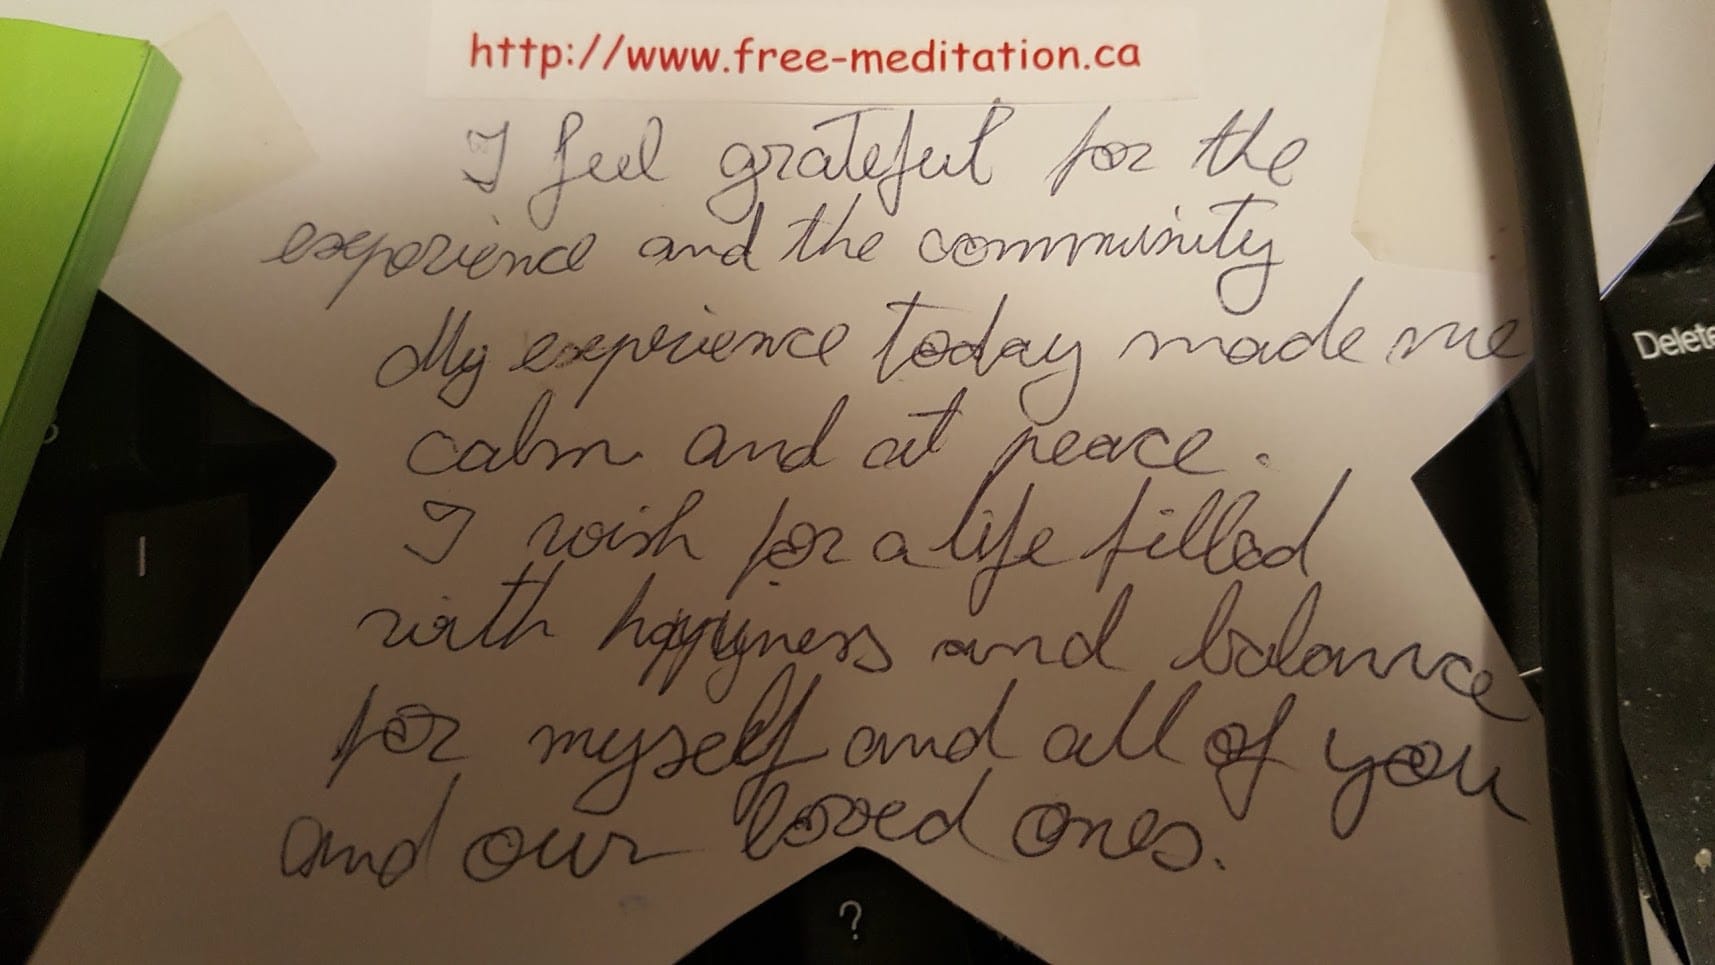 http://www.free-meditation.ca
I feel grateful for the
experience and the community
My experience today made me
calm and at peace.
I wish for a life filled
with happiness and balance
for myself and all of you
and our loved ones.
Delete
?